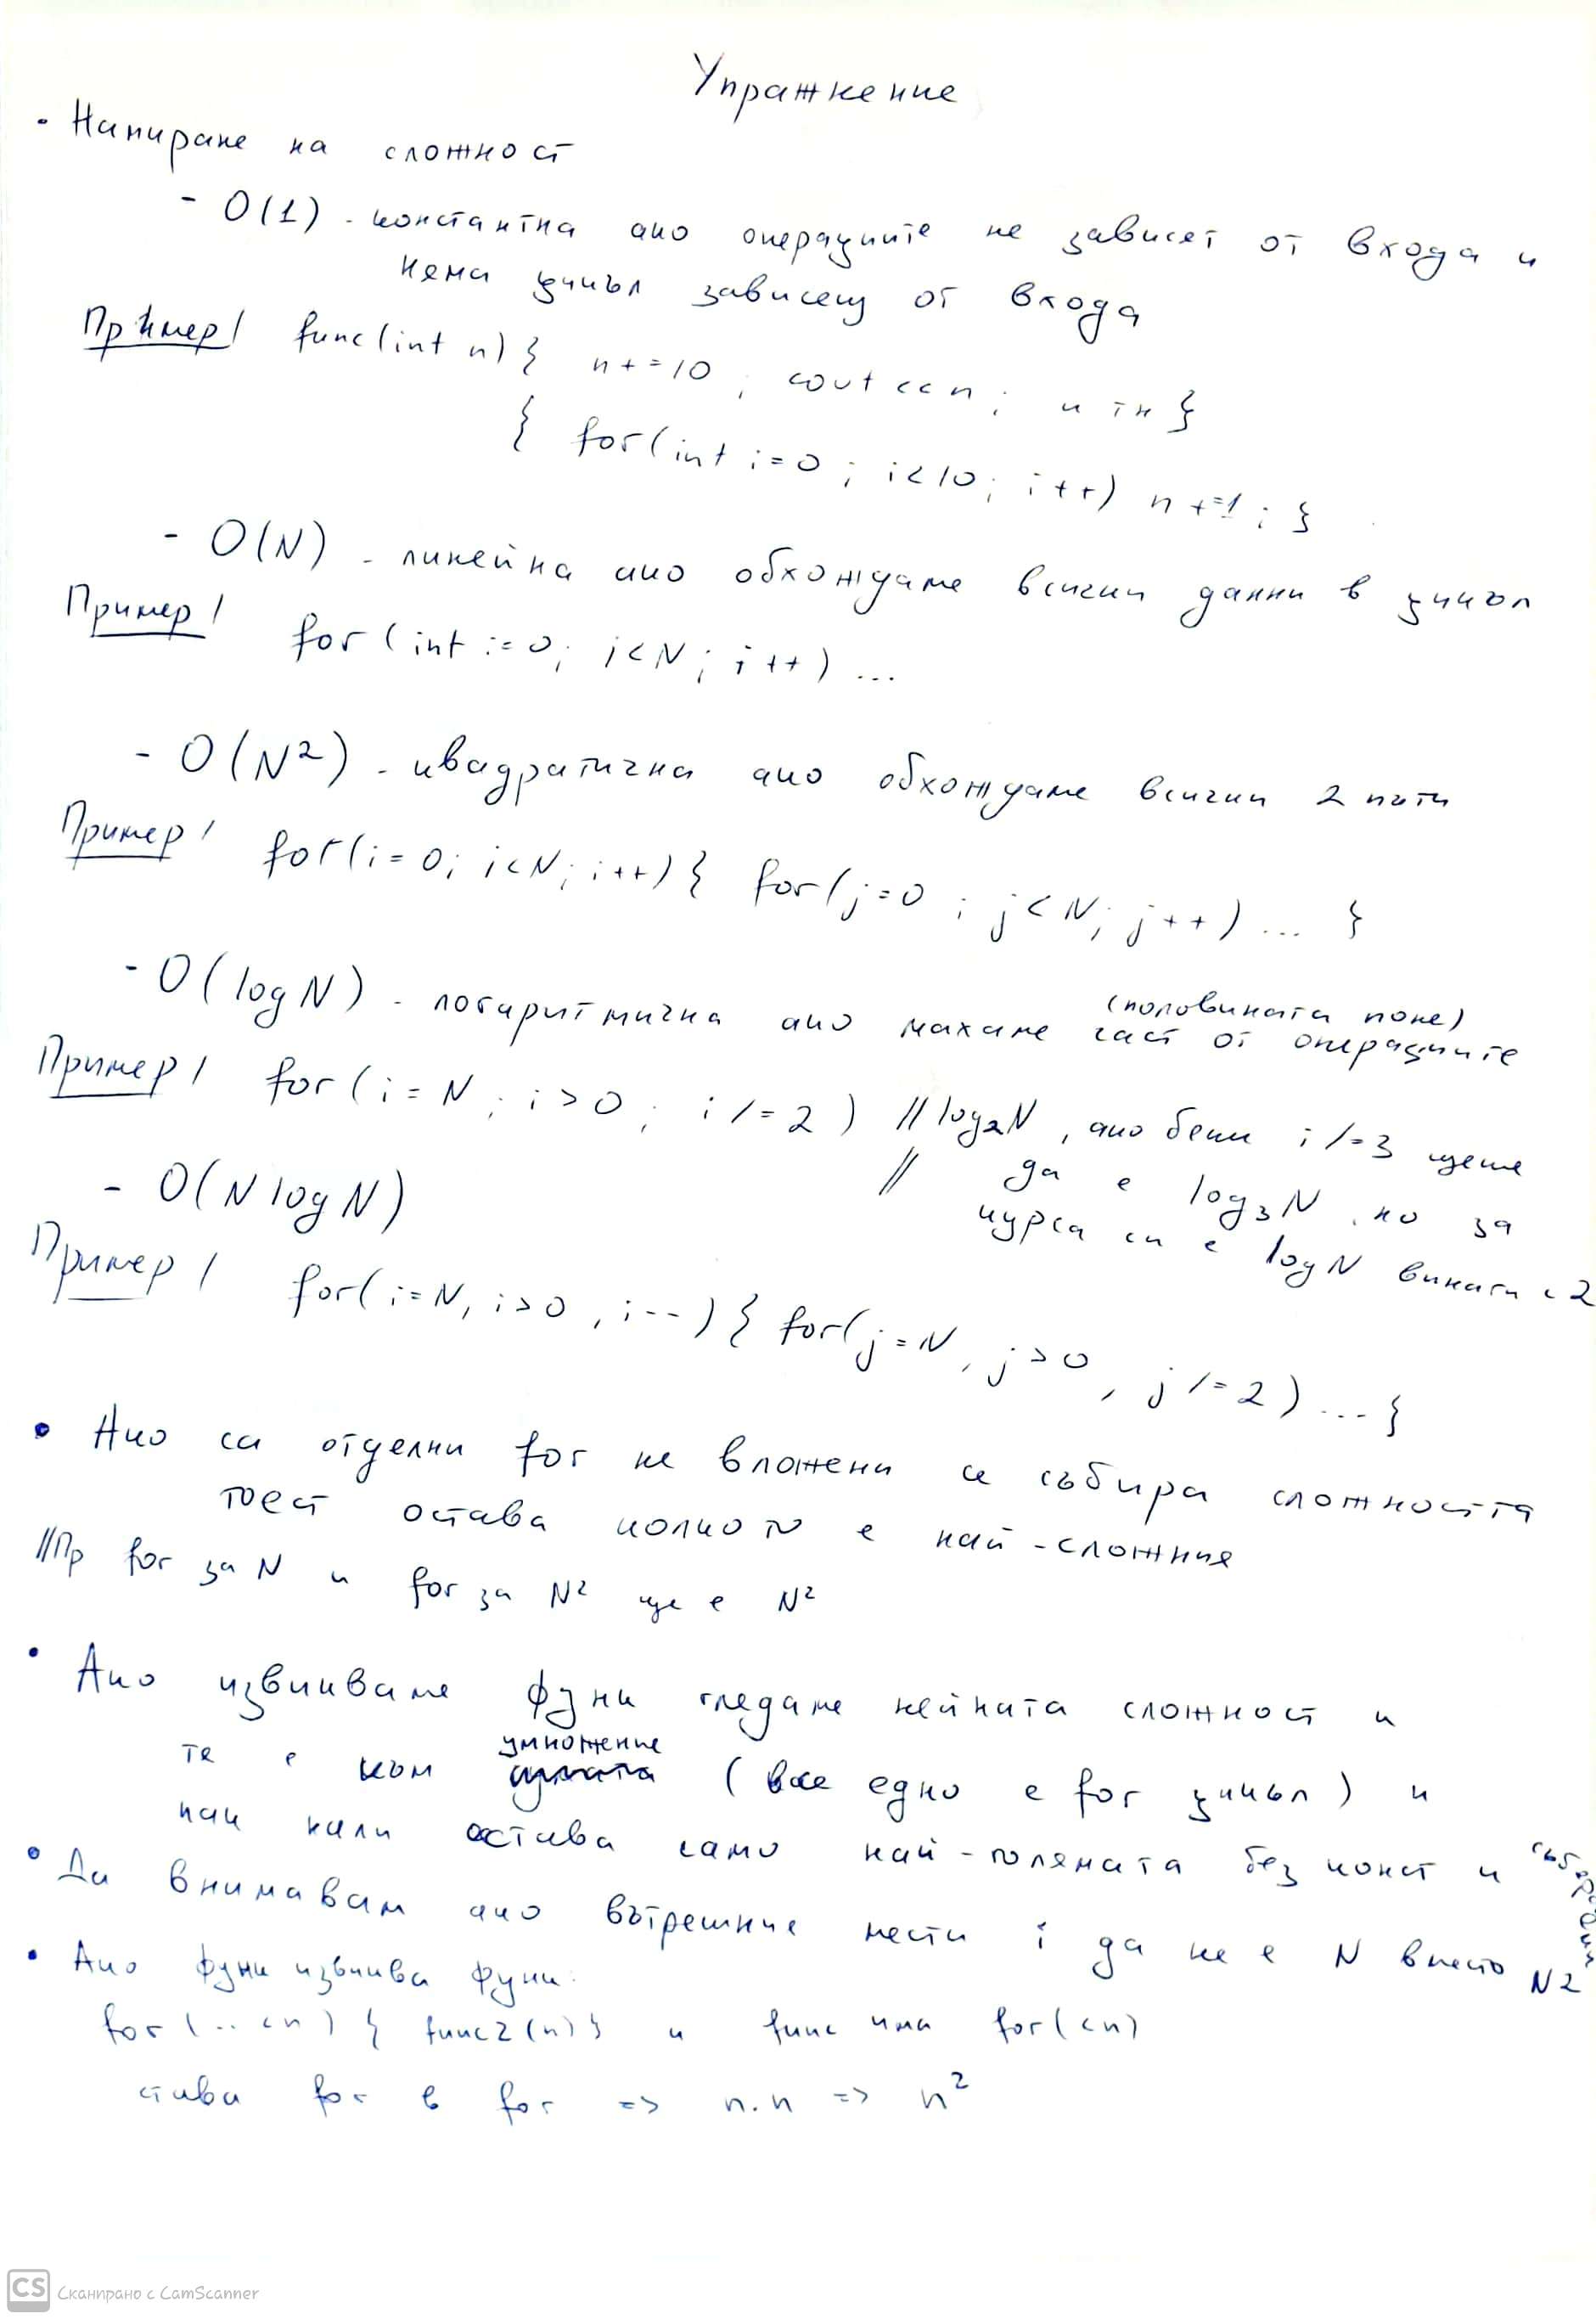 Упражнение
• Намиране на сложност
- O(1) - константна ако операциите не зависят от входа и
няма цикъл зависещ от входа
Пример/ func(int n) { n+=10; cout<<n; и тн }
{ for(int i=0; i<10; i++) n+=1; }
- O(N) - линейна ако обхождаме всички данни в цикъл
Пример/ for(int i=0; i<N; i++) ...
- O(N²) - квадратична ако обхождаме всички 2 пъти
Пример/ for(i=0; i<N; i++) { for(j=0; j<N; j++) ... }
(половината поне)
- O(log N) - логаритмична ако махаме част от операциите
Пример/ for(i=N; i>0; i/=2) // log₂N, ако беше i/=3 щеше
// да е log₃N, но за
- O(N log N)
курса си е log N винаги с 2
Пример/ for(i=N, i>0, i--) { for(j=N, j>0, j/=2) ... }
• Ако са отделни for не вложени се събира сложността
тоест остава колкото е най-сложния
//Пр for за N и for за N² ще е N²
• Ако извикваме функ гледаме нейната сложност и
умножение
тя е към (все едно е for цикъл) и
накрая остава само най-голямата без конст и събираеми
• Да внимавам ако вътрешния мести i да не е N вместо N2
• Ако функ извиква функ:
for(..<n) { func2(n)} и func има for(<n)
става for в for => n.n => n²
CS Сканирано с CamScanner